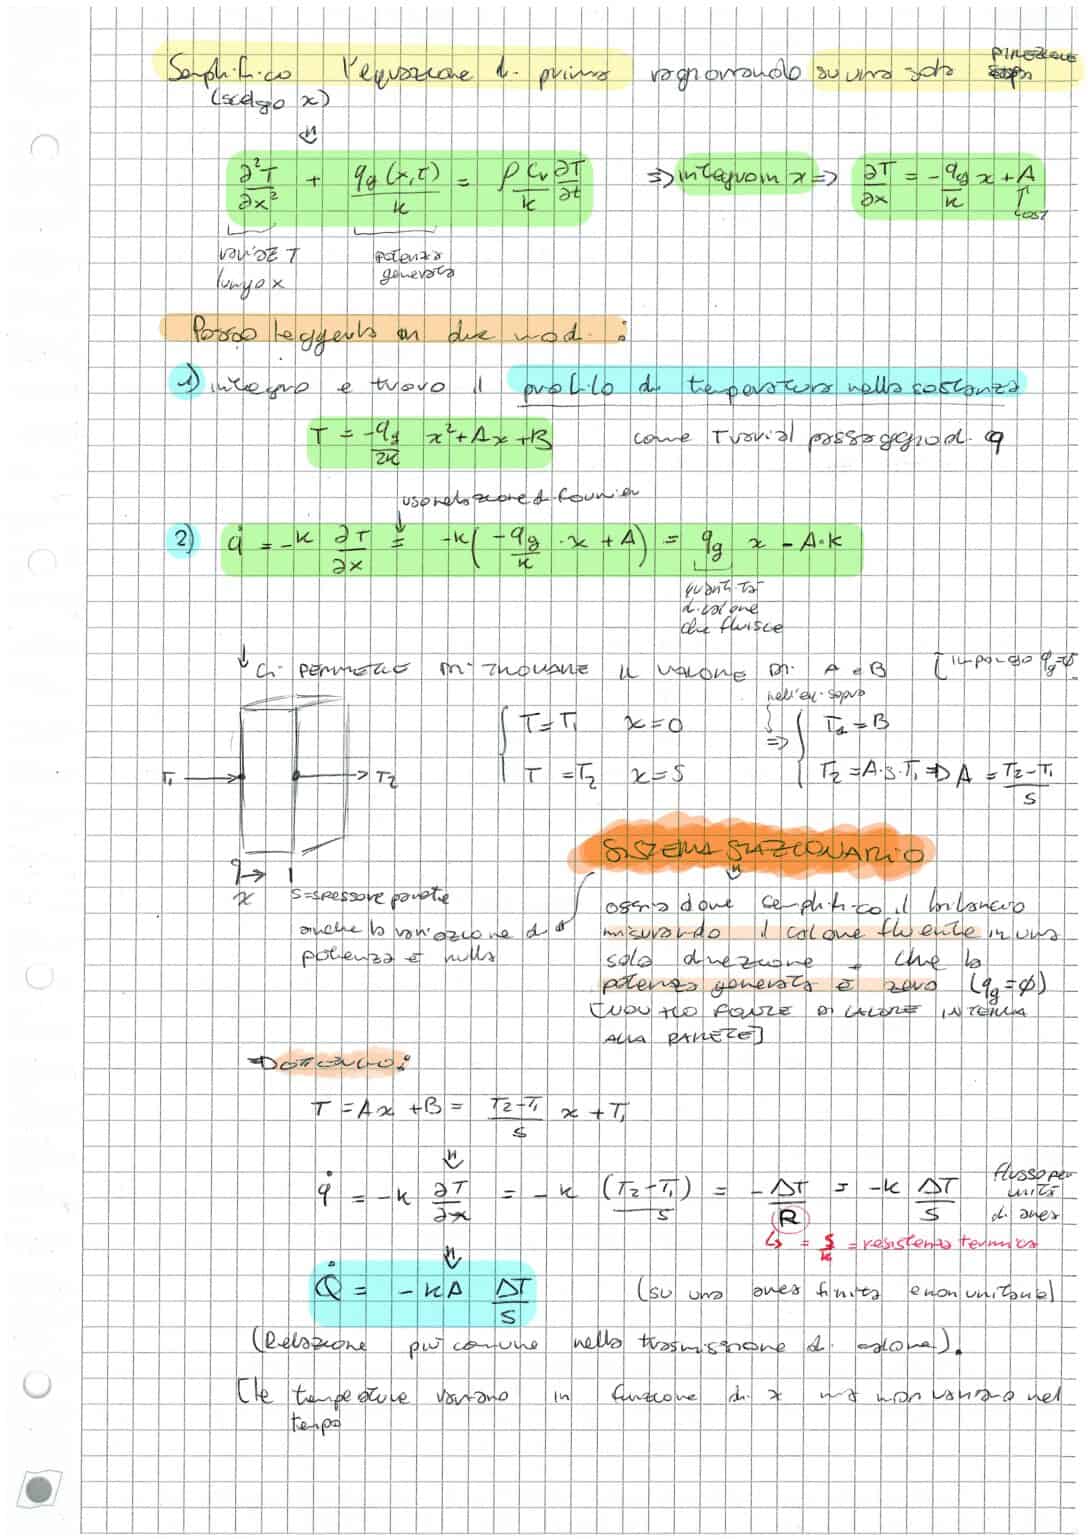 Semplifico l'equazione di prima ragionando su una sola DIREZIONE
(scelgo x)
∂²T/∂x² + qg(x,τ)/k = ρCv/k ∂T/∂t => integro in x => ∂T/∂x = -qg/k x + A
cost
variaz T potenza
lungo x generata
Posso leggerla in due modi:
1) integro e trovo il profilo di temperatura nella sostanza
T = -qg/2k x² + Ax + B come T varia al passaggio di q
uso relazione di Fourier
2) q̇ = -k ∂T/∂x = -k(-qg/k · x + A) = qg x - A·k
quantità
di calore
che fluisce
↓ Ci PERMETTE DI TROVARE IL VALORE DI A e B [impongo qg=φ
nell'eq. sopra
T = T1 x=0 => T1 = B
T1 T2 T = T2 x=S T2 = A·S·T1 => A = T2-T1/S
SISTEMA STAZIONARIO
x S=spessore parete
anche la variazione di
potenza è nulla
ossia dove semplifico il bilancio
misurando il calore fluente in una
sola direzione e che la
potenza generata è zero (qg=φ)
[NON HO FONTE DI CALORE INTERNA
ALLA PARETE]
=> OTTENGO:
T = Ax + B = T2-T1/S x + T1
q̇ = -k ∂T/∂x = -k (T2-T1)/S = -ΔT/R = -k ΔT/S flusso per
unità
di area
↳ = S/k = resistenza termica
Q̇ = -kA ΔT/S (su una area finita e non unitaria)
(Relazione più comune nella trasmissione di calore).
[le temperature variano in funzione di x ma non variano nel
tempo